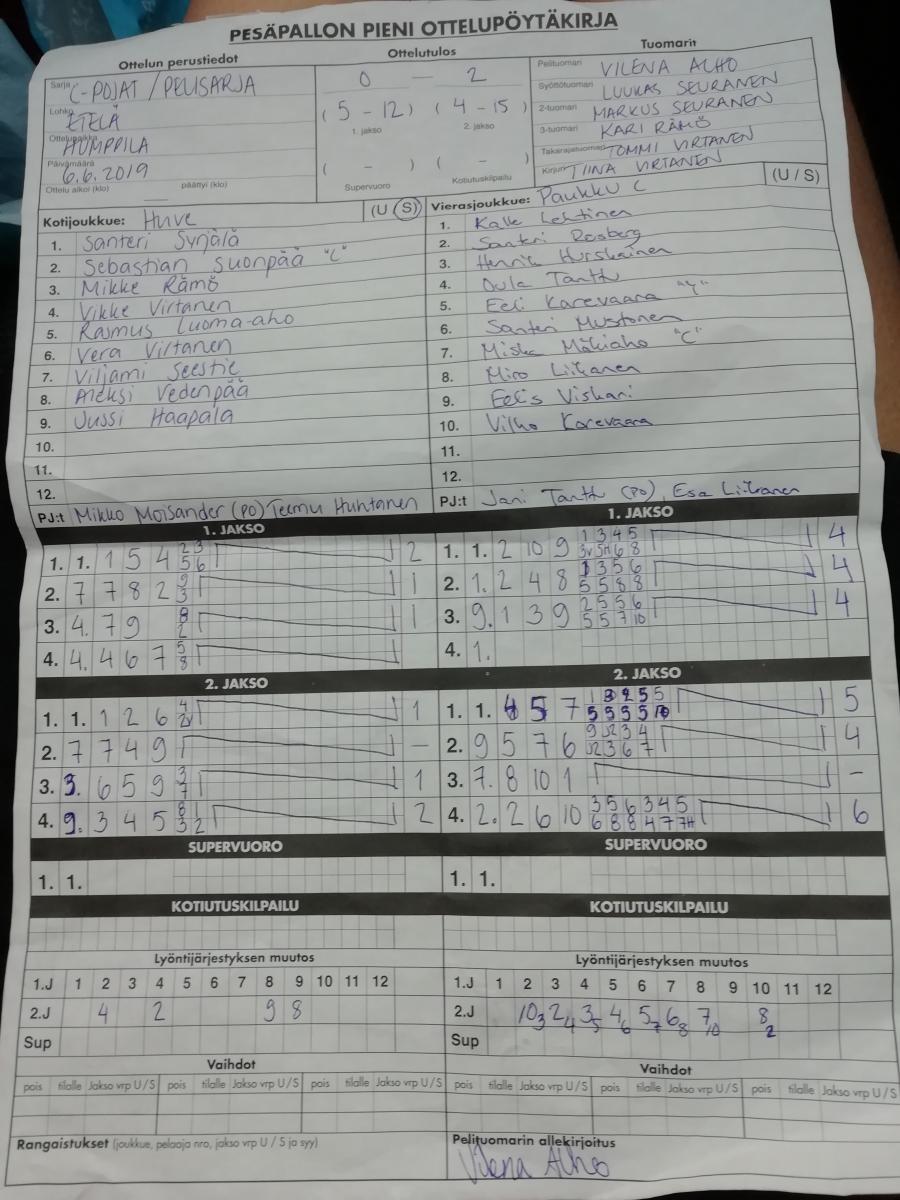 PESÄPALLON PIENI OTTELUPÖYTÄKIRJA
Ottelun perustiedot
Ottelutulos
Tuomarit
Sarja C-POJAT / PELISARJA
Lohko ETELÄ
Ottelupaikka HUMPPILA
Päivämäärä 6.6.2019
Ottelu alkoi (klo) päättyi (klo)
0 — 2
(5 - 12) (4 - 15)
1. jakso 2. jakso
( - ) ( - )
Supervuoro Kotiutuskilpailu
Pelituomari VILENA ALHO
Syöttötuomari LUUKAS SEURANEN
2-tuomari MARKUS SEURANEN
3-tuomari KARI RÄMÖ
Takarajatuomari TOMMI VIRTANEN
Kirjuri TIINA VIRTANEN
Kotijoukkue: Huve (U/S)
1. Santeri Syrjälä
2. Sebastian Suonpää "C"
3. Mikke Rämö
4. Vikke Virtanen
5. Rasmus Luoma-aho
6. Vera Virtanen
7. Viljami Seestie
8. Aleksi Vedenpää
9. Jussi Haapala
10.
11.
12.
PJ:t Mikko Moisander (PO) Teemu Huhtanen
Vierasjoukkue: Paukku C (U / S)
1. Kalle Lehtinen
2. Santeri Rosberg
3. Henrik Hurskainen
4. Oula Tanttu
5. Eeli Karevaara "Y"
6. Santeri Mustonen
7. Miska Mäkiaho "C"
8. Miro Liikanen
9. Eelis Viskari
10. Vilho Karevaara
11.
12.
PJ:t Jani Tanttu (PO), Esa Liikanen
1. JAKSO
1. 1. 1 5 4 2 3 2
5 6
2. 7 7 8 2 9 1
3
3. 4. 7 9 8 1
2
4. 4. 4 6 7 5
8
1. JAKSO
1. 1. 2 10 9 1 3 4 5 4
3v 5H 6 8
2. 1. 2 4 8 1 3 5 6 4
5 5 8 8
3. 9. 1 3 9 2 5 5 6 4
5 5 7 10
4. 1.
2. JAKSO
1. 1. 1 2 6 4 1
2. 7 7 4 9 –
3. 3. 6 5 9 3 1
7
4. 9. 3 4 5 8 1 2
3 2
2. JAKSO
1. 1. 5 7 5
5 5 5 5 10
2. 9 5 7 6 4
3. 7. 8 10 1 –
4. 2. 2 6 10 3 5 6 3 4 5 6
6 8 8 4 7 7H
SUPERVUORO
1. 1.
SUPERVUORO
1. 1.
KOTIUTUSKILPAILU
KOTIUTUSKILPAILU
Lyöntijärjestyksen muutos
1.J 1 2 3 4 5 6 7 8 9 10 11 12
2.J 4 2 9 8
Sup
Lyöntijärjestyksen muutos
1.J 1 2 3 4 5 6 7 8 9 10 11 12
2.J 10 3 2 4 3 5 4 6 5 7 6 8 7 10 8 2
Sup
Vaihdot
pois tilalle Jakso vrp U / S pois tilalle Jakso vrp U / S pois tilalle Jakso vrp U / S
Vaihdot
pois tilalle Jakso vrp U / S pois tilalle Jakso vrp U / S pois tilalle Jakso vrp U / S
Rangaistukset (joukkue, pelaaja nro, jakso vrp U / S ja syy)
Pelituomarin allekirjoitus
Vilena Alho